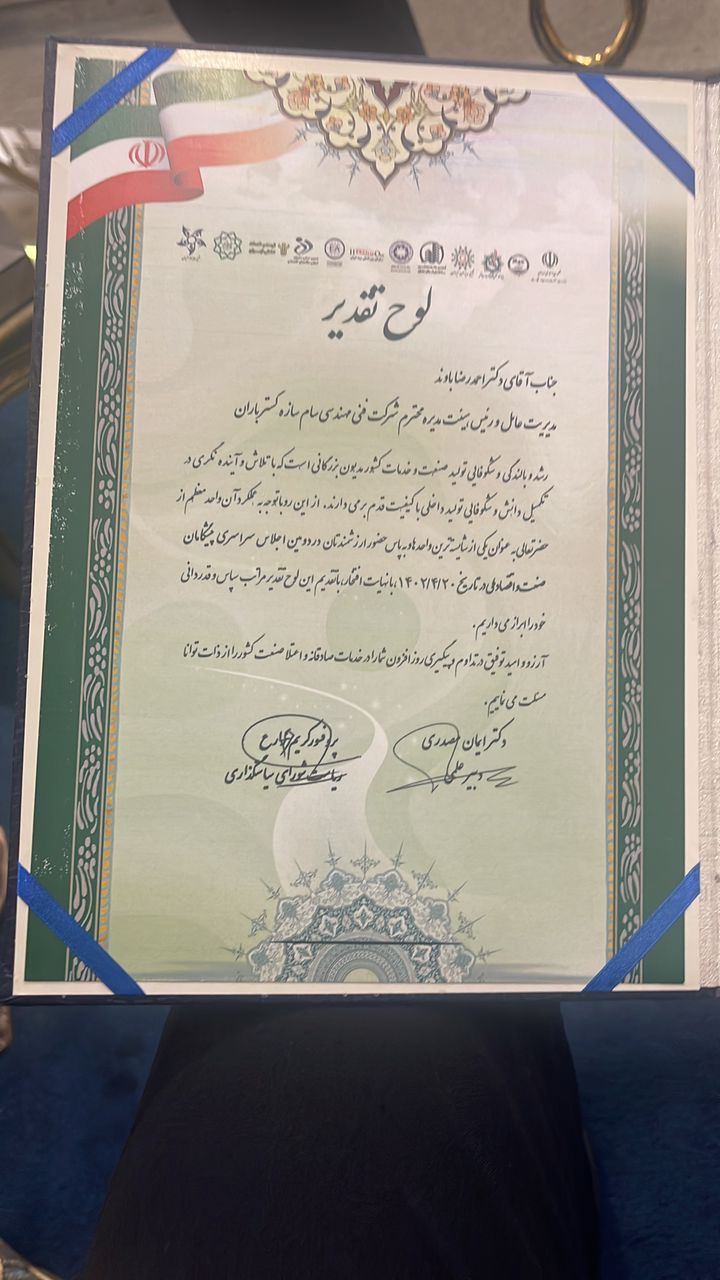 لوح تقدیر
جناب آقای دکتر احمدرضا باوند
مدیریت عامل و رئیس هیئت مدیره محترم شرکت فنی مهندسی سام سازه گستر باران
رشد و بالندگی و شکوفایی تولید صنعت و خدمات کشور مدیون بزرگانی است که با تلاش و آینده نگری در
تکمیل دانش و شکوفایی تولید داخلی با کیفیت قدم برمی دارند. از این رو با توجه به عملکرد آن واحد معظم از
حضرتعالی به عنوان یکی از شایسته ترین واحدها و به پاس حضور ارزشمندتان در دومین اجلاس سراسری پیشگامان
صنعت و اقتصاد ملی در تاریخ ۱۴۰۲/۴/۲۰، با نهایت افتخار، با تقدیم این لوح تقدیر مراتب سپاس و قدردانی
خود را ابراز می داریم.
آرزو و امید توفیق در تداوم و پیگیری روزافزون شما را در خدمات صادقانه و اعتلا صنعت کشور را از ذات توانا
مسئلت می نماییم.
دکتر ایمان مصدری
دبیر علمی
پروفسور کریم زارع
ریاست شورای سیاستگذاری